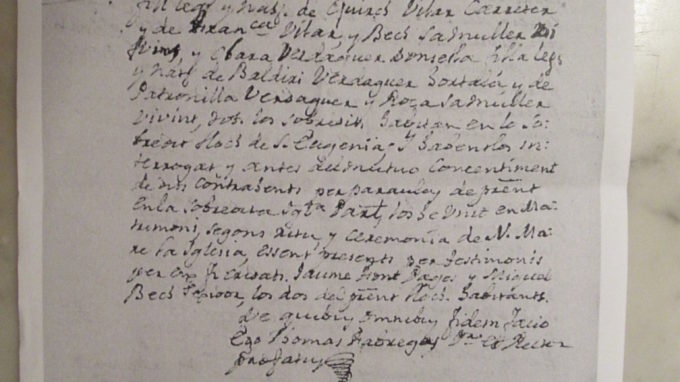 fill legt y natl de Quirch Vilar Carreter
y de Franca Vilar y Bech sa Muller
vivint, y Clara Verdaguer Donsella filla legt
y natl de Baldiri Verdaguer y de
Petronilla Verdaguer y Roca sa Muller
vivint, tots los sobredits habitan en lo so
bredit lloch de S. Eugenia: y habentlos in
terrogat y antes de mutuo Concentiment
de dits Contrahents per paraulas de prēnt
en la sobredita Iglã Parl los he Unit en Ma
trimoni, segons ritu, y ceremonia de N. Ma
re la Iglesia, essent presents per testimonis
per est fi cridats, Jaume Font Pages y Miquel
Bech, los dos del prēnt lloch habitants.
De quibus omnibus fidem facio
Ego Thomas Fabregas Pre. et Rector
prefatus